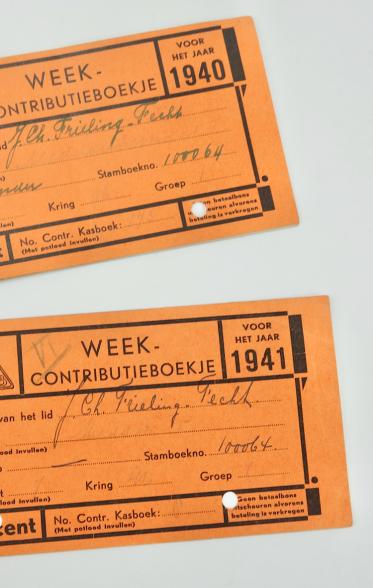 WEEK-
CONTRIBUTIEBOEKJE
VOOR
HET JAAR
1940
J. Ch. Frieling-Fecht
Stamboekno. 100064
Kring
Groep
No. Contr. Kasboek:
(Met potlood invullen)
en betaalbons
scheuren alvorens
betaling is verkregen
WEEK-
CONTRIBUTIEBOEKJE
VOOR
HET JAAR
1941
van het lid J. Ch. Frieling-Fecht.
ood invullen)
Stamboekno. 100064.
Kring
Groep
ood invullen)
cent
No. Contr. Kasboek:
(Met potlood invullen)
Geen betaalbons
uitscheuren alvorens
betaling is verkregen